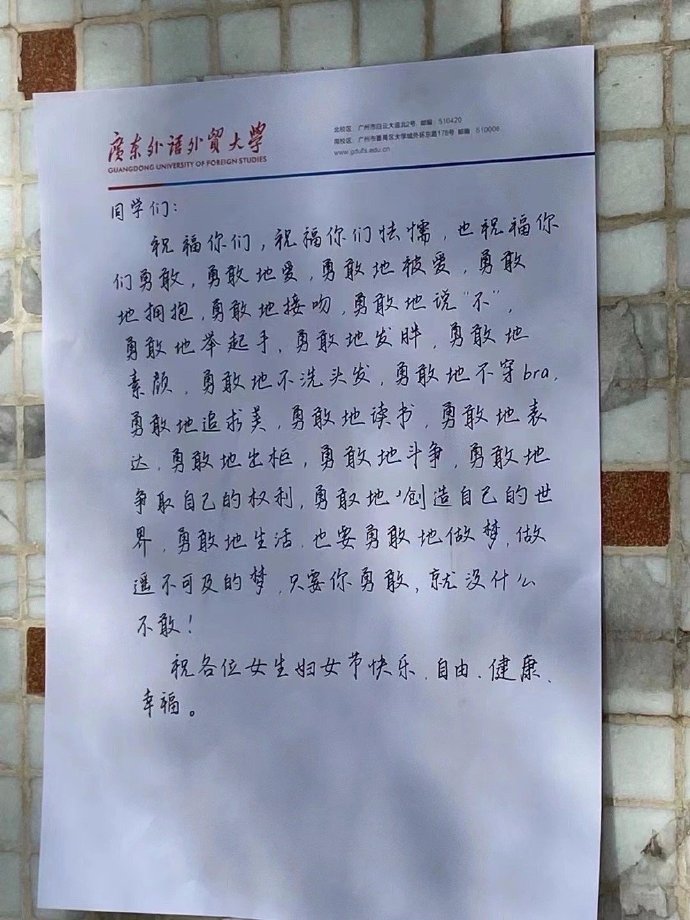 廣东外语外贸大学
GUANGDONG UNIVERSITY OF FOREIGN STUDIES
北校区：广州市白云大道北2号 邮编：510420
南校区：广州市番禺区大学城外环东路178号 邮编：510006
www.gdufs.edu.cn
同学们：
祝福你们，祝福你们怯懦，也祝福你
们勇敢，勇敢地爱，勇敢地被爱，勇敢
地拥抱，勇敢地接吻，勇敢地说“不”，
勇敢地举起手，勇敢地发胖，勇敢地
素颜，勇敢地不洗头发，勇敢地不穿bra，
勇敢地追求美，勇敢地读书，勇敢地表
达，勇敢地出柜，勇敢地斗争，勇敢地
争取自己的权利，勇敢地创造自己的世
界，勇敢地生活，也要勇敢地做梦，做
遥不可及的梦，只要你勇敢，就没什么
不敢！
祝各位女生妇女节快乐、自由、健康、
幸福。